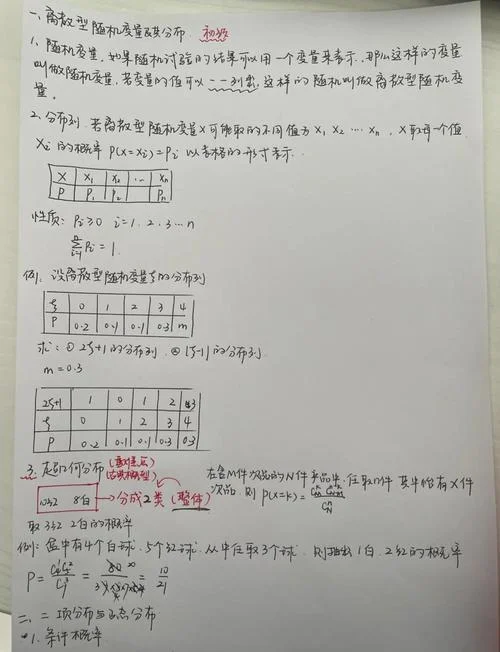 一、离散型随机变量及其分布 初级
1. 随机变量. 如果随机试验的结果可以用一个变量来表示, 那么这样的变量
叫做随机变量. 若变量的值可以一一列出, 这样的随机叫做离散型随机变
量.
2. 分布列. 若离散型随机变量X可能取的不同值为 X₁ X₂ … Xₙ, X取每一个值
Xi 的概率 P(X=Xi)=Pi 以表格的形式表示.
X X₁ X₂ … Xₙ
P P₁ P₂ Pₙ
性质: Pi≥0 i=1.2.3…n
∑ Pi=1.
例: 设离散型随机变量ξ的分布列
ξ 0 1 2 3 4
P 0.2 0.1 0.1 0.3 m
求: ① 2ξ+1的分布列. ② |ξ-1|的分布列.
m=0.3
2ξ+1 1 0 1 2
ξ 0 1 2 3 4
P 0.2 0.1 0.1 0.3 0.3
3. 超几何分布 (古典概型)
10红 8白 → 分成2类 (整体)
在含M件次品的N件产品中, 任取n件 其中恰有X件
次品. 则 P(X=k)=
取3红 2白的概率
例: 盒中有4个白球, 5个红球. 从中任取3个球. 则抽出1白. 2红的概率
P = C₄¹C₅² / C₉³ = = 10/21
二、二项分布与正态分布
*1. 条件概率